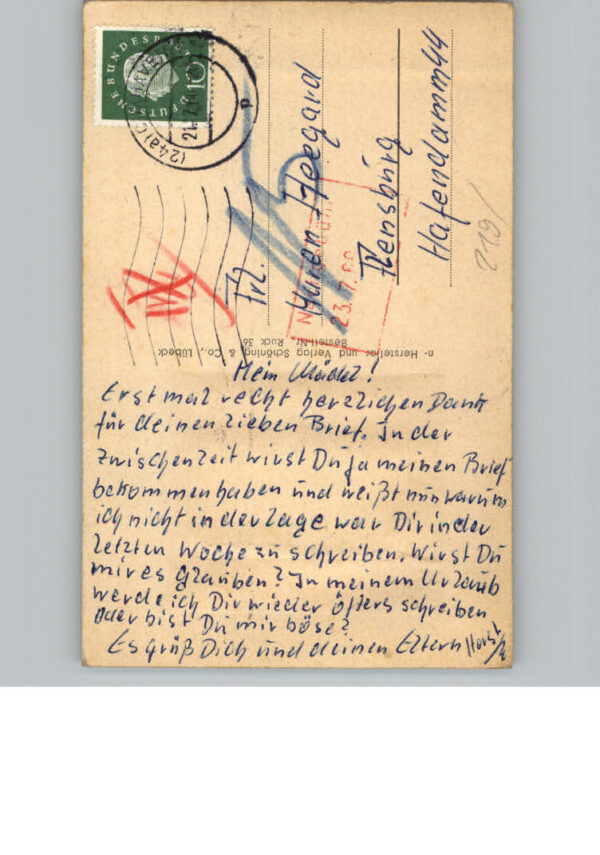 DEUTSCHE BUNDESPOST
10
(24a)
21.7.60
Frl.
Maren Heegard
Flensburg
Hafendamm 44
23.7.60
219/
Hersteller und Verlag Schöning & Co., Lübeck
Bestell-Nr. Ruck 36
Mein Mädel!
Erst mal recht herzlichen Dank
für deinen lieben Brief. In der
Zwischenzeit wirst Du ja meinen Brief
bekommen haben und weißt nun warum
ich nicht in der Lage war Dir in der
letzten Woche zu schreiben. Wirst Du
mir es glauben? In meinem Urlaub
werde ich Dir wieder öfters schreiben
oder bist Du mir böse?
Es grüß Dich und deinen Eltern Horst